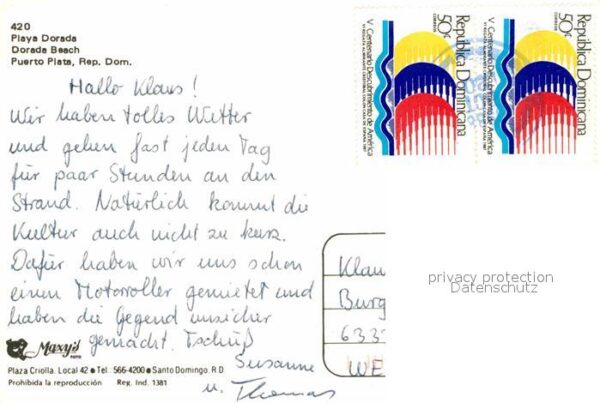 420
Playa Dorada
Dorada Beach
Puerto Plata, Rep. Dom.
Hallo Klaus!
Wir haben tolles Wetter
und gehen fast jeden Tag
für paar Stunden an den
Strand. Natürlich kommt die
Kultur auch nicht zu kurz.
Dafür haben wir uns schon
einen Motorroller gemietet und
haben die Gegend unsicher
gemacht. Tschüß
Susanne
u. Thomas
Maxy's
FOTO
Plaza Criolla. Local 42 ● Tel. 566-4200 ● Santo Domingo. R.D
Prohibida la reproducción Reg. Ind. 1381
República Dominicana
50¢
CORREOS
V Centenario Descubrimiento de América
República Dominicana
50¢
CORREOS
V Centenario Descubrimiento de América
Klau
Burg
633
WE
privacy protection
Datenschutz